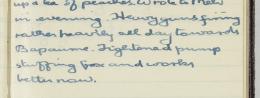 up a tea of peaches. Wrote to Mels
in evening. Heavy guns firing
rather heavily all day towards
Bapaume. Tightened pump
stuffing box and works
better now.